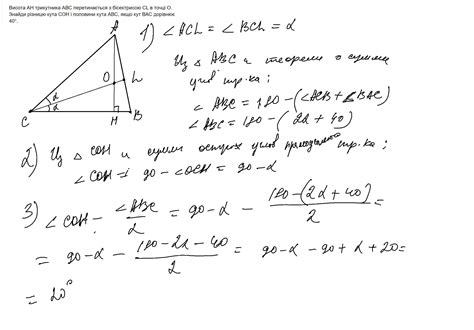 Висота АН трикутника АВС перетинається з бісектрисою CL в точці О.
Знайди різницю кута СОН і половини кута АВС, якщо кут ВАС дорівнює
40°.
A
O
L
C
H
B
α
α
1) ∠ACL = ∠BCL = α
Из △ ABC и теоремы о сумме
углов тр-ка;
∠ABC = 180 - (∠ACB + ∠BAC)
∠ABC = 180 - (2α + 40)
2) Из △ COH и суммы острых углов прямоугольного
тр-ка;
∠COH = 90 - ∠OCH = 90 - α
3) ∠COH - ∠ABC/2 = 90 - α - (180 - (2α + 40))/2 =
= 90 - α - (180 - 2α - 40)/2 = 90 - α - 90 + α + 20 =
= 20°